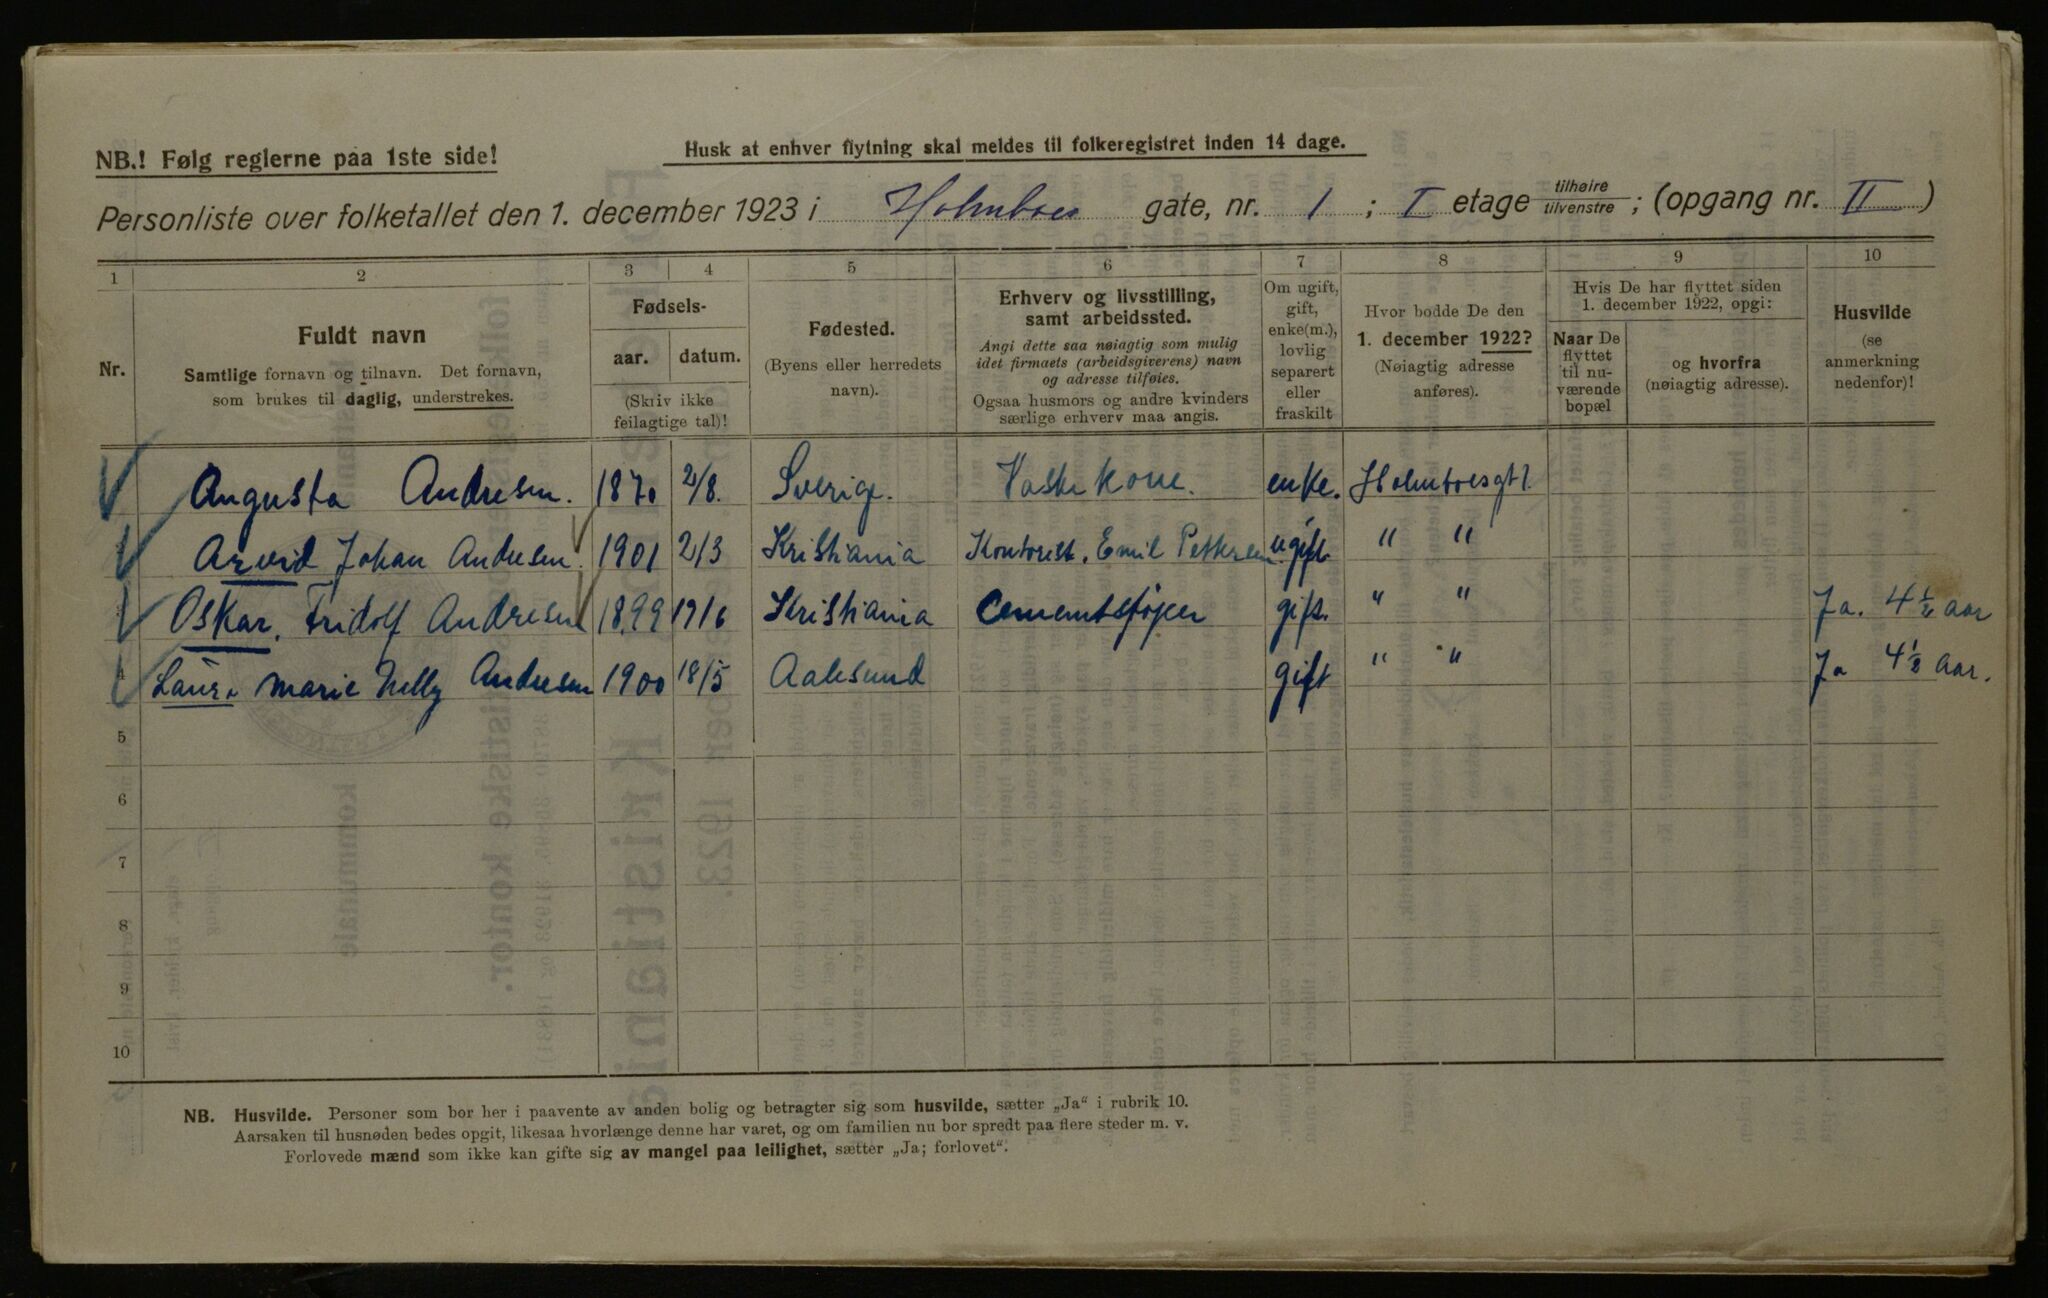 NB.! Følg reglerne paa 1ste side!
Husk at enhver flytning skal meldes til folkeregistret inden 14 dage.
Personliste over folketallet den 1. december 1923 i Holmboes gate, nr. 1 ; I etage tilhøire/tilvenstre ; (opgang nr. II )
1 2 3 4 5 6 7 8 9 10
Nr.
Fuldt navn
Samtlige fornavn og tilnavn. Det fornavn,
som brukes til daglig, understrekes.
Fødsels-
aar. datum.
(Skriv ikke
feilagtige tal)!
Fødested.
(Byens eller herredets
navn).
Erhverv og livsstilling,
samt arbeidssted.
Angi dette saa nøiagtig som mulig
idet firmaets (arbeidsgiverens) navn
og adresse tilføies.
Ogsaa husmors og andre kvinders
særlige erhverv maa angis.
Om ugift,
gift,
enke(m.),
lovlig
separert
eller
fraskilt
Hvor bodde De den
1. december 1922?
(Nøiagtig adresse
anføres).
Hvis De har flyttet siden
1. december 1922, opgi:
Naar De
flyttet
til nu-
værende
bopæl
og hvorfra
(nøiagtig adresse).
Husvilde
(se
anmerkning
nedenfor)!
Augusta Andresen. 1870 2/8. Sverige. Vaskekone. enke. Holmboesgt 1.
Arvid Johan Andresen. 1901 2/3 Kristiania Kontorist. Emil Pettersen ugift " "
Oskar. Fridolf Andresen 1899 17/6 Kristiania Cementstøper gift. " " Ja. 4½ aar
4 Laura Marie Nelly Andresen 1900 18/5 Aalesund gift " " Ja 4½ aar.
5
6
7
8
9
10
NB. Husvilde. Personer som bor her i paavente av anden bolig og betragter sig som husvilde, sætter „Ja“ i rubrik 10.
Aarsaken til husnøden bedes opgit, likesaa hvorlænge denne har varet, og om familien nu bor spredt paa flere steder m. v.
Forlovede mænd som ikke kan gifte sig av mangel paa leilighet, sætter „Ja; forlovet“.